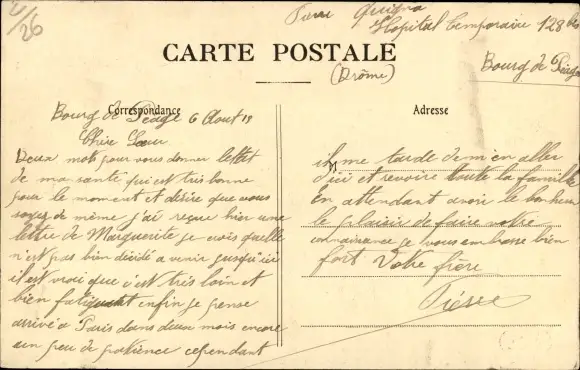 4/26
Pierre
Hopital Temporaire 128 bis
CARTE POSTALE
(Drôme)
Bourg de Péage
Correspondance
Adresse
Bourg de Péage 6 Aout 18
Chère Sœur
Deux mots pour vous donner lettet
de ma santé qui est très bonne
pour le moment et désire que vous
soyez de même j'ai reçue hier une
lettre de Marguerite je crois quelle
n'est pas bien décidé a venir jusqu'ici
il est vrai que c'est très loin et
bien fatiguant enfin je pense
arrivé a Paris dans deux mois encore
un peu de patience cependant
il me tarde de m'en aller
d'ici et revoire toute la famille
En attendant avoir le bonheur
le plaisir de faire votre
connaissance je vous embrasse bien
fort Votre frère
Pierre